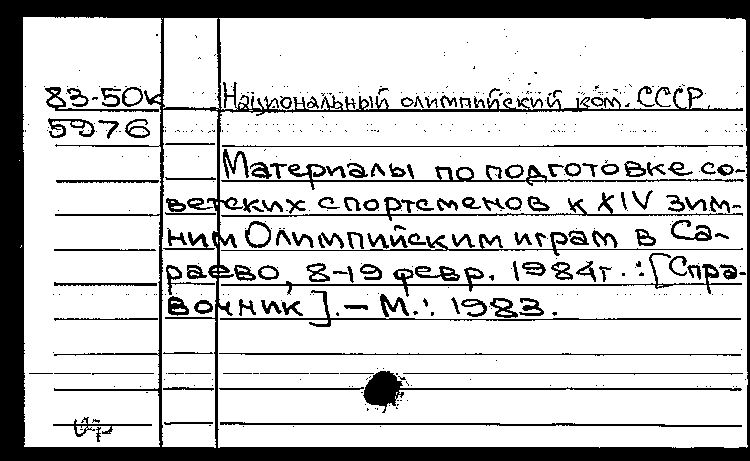 83-50к Национальный олимпийский ком. СССР.
5976
Материалы по подготовке со-
ветских спортсменов к XIV зим-
ним Олимпийским играм в Са-
раево, 8-19 февр. 1984г. : [Спра-
вочник]. – М.: 1983.